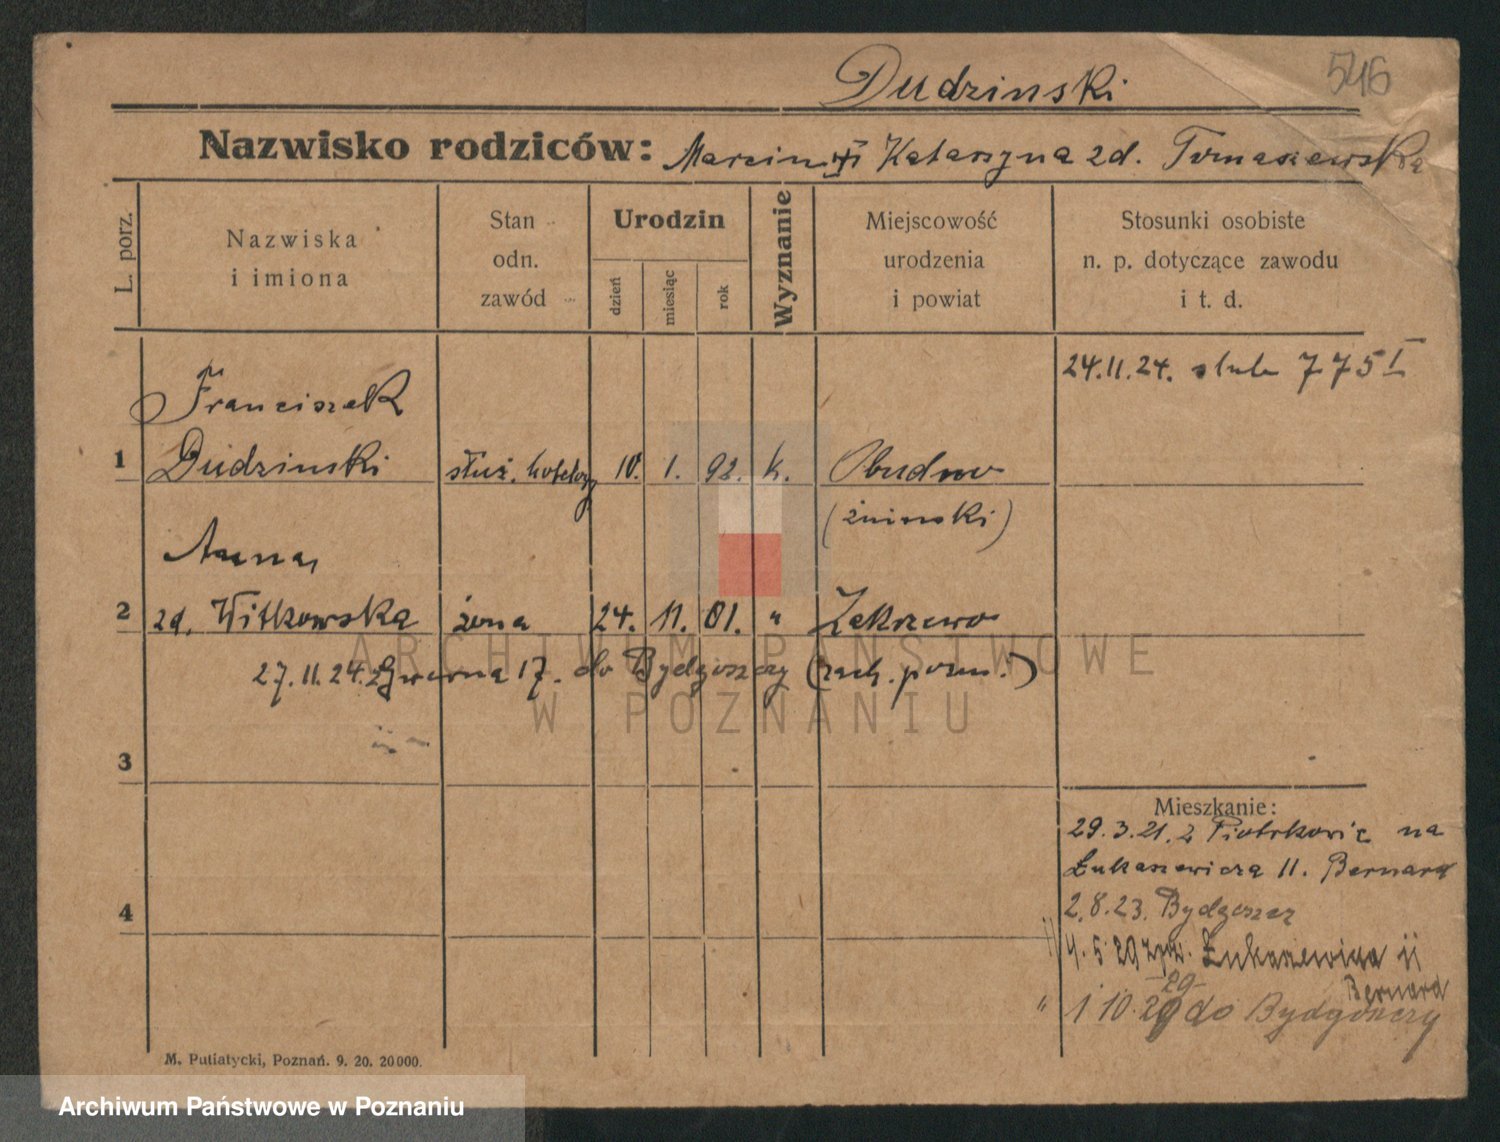 Dudzinski
546
Nazwisko rodziców: Marcin i Katarzyna zd. Tomaszewska
L. porz.
Nazwiska
i imiona
Stan
odn.
zawód
Urodzin
dzień
miesiąc
rok
Wyznanie
Miejscowość
urodzenia
i powiat
Stosunki osobiste
n. p. dotyczące zawodu
i t. d.
24.11.24. slub 775 I
Franciszek
1 Dudzinski służ. hotelowy 10. 1. 92. k. Obudno
(żninski)
Anna
2 zd. Witkowska żona 24. 11. 01. " Zakrzewo
27.11.24. z Gwarna 17. do Bydgoszczy (rach. pozn.)
ARCHIWUM PAŃSTWOWE
W POZNANIU
3
Mieszkanie:
29.3.21. z Piotrkowic na
Łukaszewicza 11. Bernard
4
2.8.23. Bydgoszcz
4.5 29 Łukaszewicza 11
Bernard
29
" 1 10. 29 do Bydgoszczy
M. Putiatycki, Poznań. 9. 20. 20000.
Archiwum Państwowe w Poznaniu